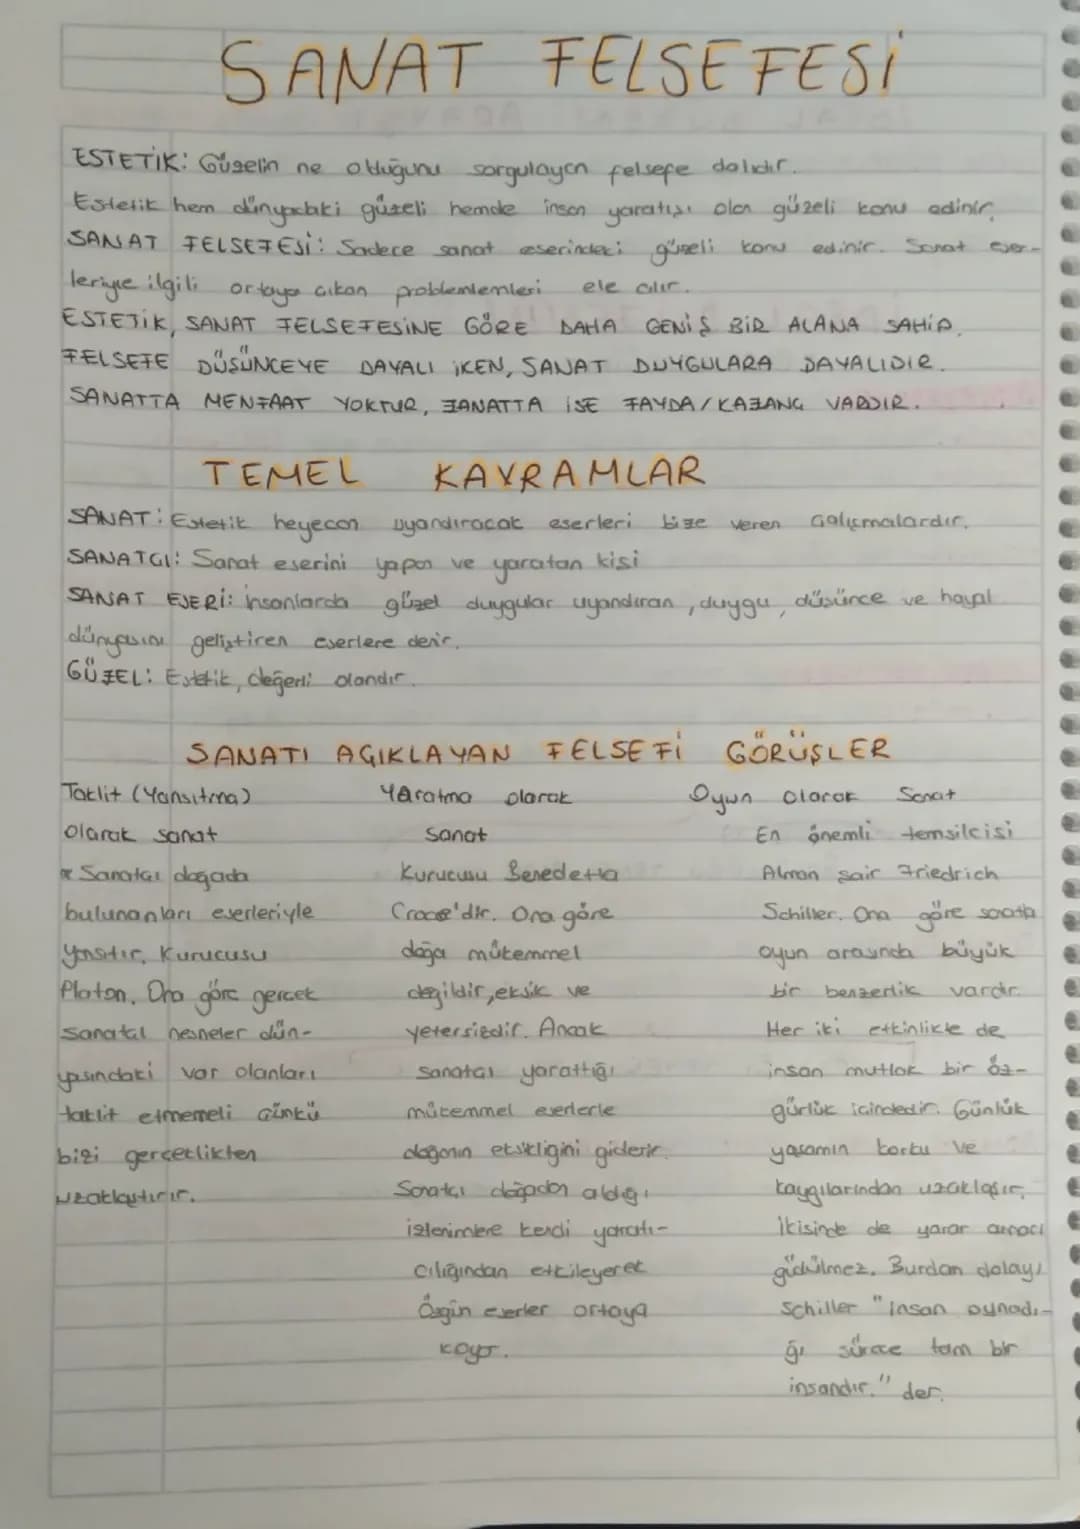 SANAT FELSEFESİ
ESTETİK: Güzelin ne olduğunu sorgulayan felsefe dalıdır.
Estetik hem dünyadaki güzeli hemde insan yaratışı olan güzeli konu edinir.
SANAT FELSEFESİ: Sadece sanat eserindeki güzeli konu edinir. Sanat eser-
leriyle ilgili ortaya çıkan problemlemleri ele alır.
ESTETİK, SANAT FELSEFESİNE GÖRE DAHA GENİŞ BİR ALANA SAHİP.
FELSEFE DÜŞÜNCEYE DAYALI İKEN, SANAT DUYGULARA DAYALIDIR.
SANATTA MENFAAT YOKTUR, ZANATTA İSE FAYDA/KAZANÇ VARDIR.
TEMEL KAVRAMLAR
SANAT: Estetik heyecan uyandıracak eserleri bize veren çalışmalardır.
SANATÇI: Sanat eserini yapan ve yaratan kişi
SANAT ESERİ: insanlarda güzel duygular uyandıran, duygu, düşünce ve hayal
dünyasını geliştiren eserlere denir.
GÜZEL: Estetik, değerli olandır.
SANATI AÇIKLAYAN FELSEFİ GÖRÜŞLER
Taklit (Yansıtma)
olarak sanat
* Sanatçı doğada
bulunanları eserleriyle
yansıtır. Kurucusu
Platon. Ona göre gerçek
sanatçı nesneler dün-
yasındaki var olanları
taklit etmemeli çünkü
bizi gerçeklikten
uzaklaştırır.
Yaratma olarak
sanat
Kurucusu Benedetta
Croce'dir. Ona göre
doğa mükemmel
değildir, eksik ve
yetersizdir. Ancak
sanatçı yarattığı
mükemmel eserlerle
doğanın eksikliğini giderir.
Sanatçı doğadan aldığı
izlenimlere kendi yaratı-
cılığından etkileyerek
Özgün eserler ortaya
koyar.
Oyun olarak Sanat
En önemli temsilcisi
Alman şair Friedrich
Schiller. Ona göre sanatla
oyun arasında büyük
bir benzerlik vardır.
Her iki etkinlikte de
insan mutlak bir öz-
gürlük içindedir. Günlük
yaşamın korku ve
kaygılarından uzaklaşır.
İkisinde de yarar amacı
güdülmez. Burdan dolayı
Schiller "İnsan oynadı-
ğı sürece tam bir
insandır." der.